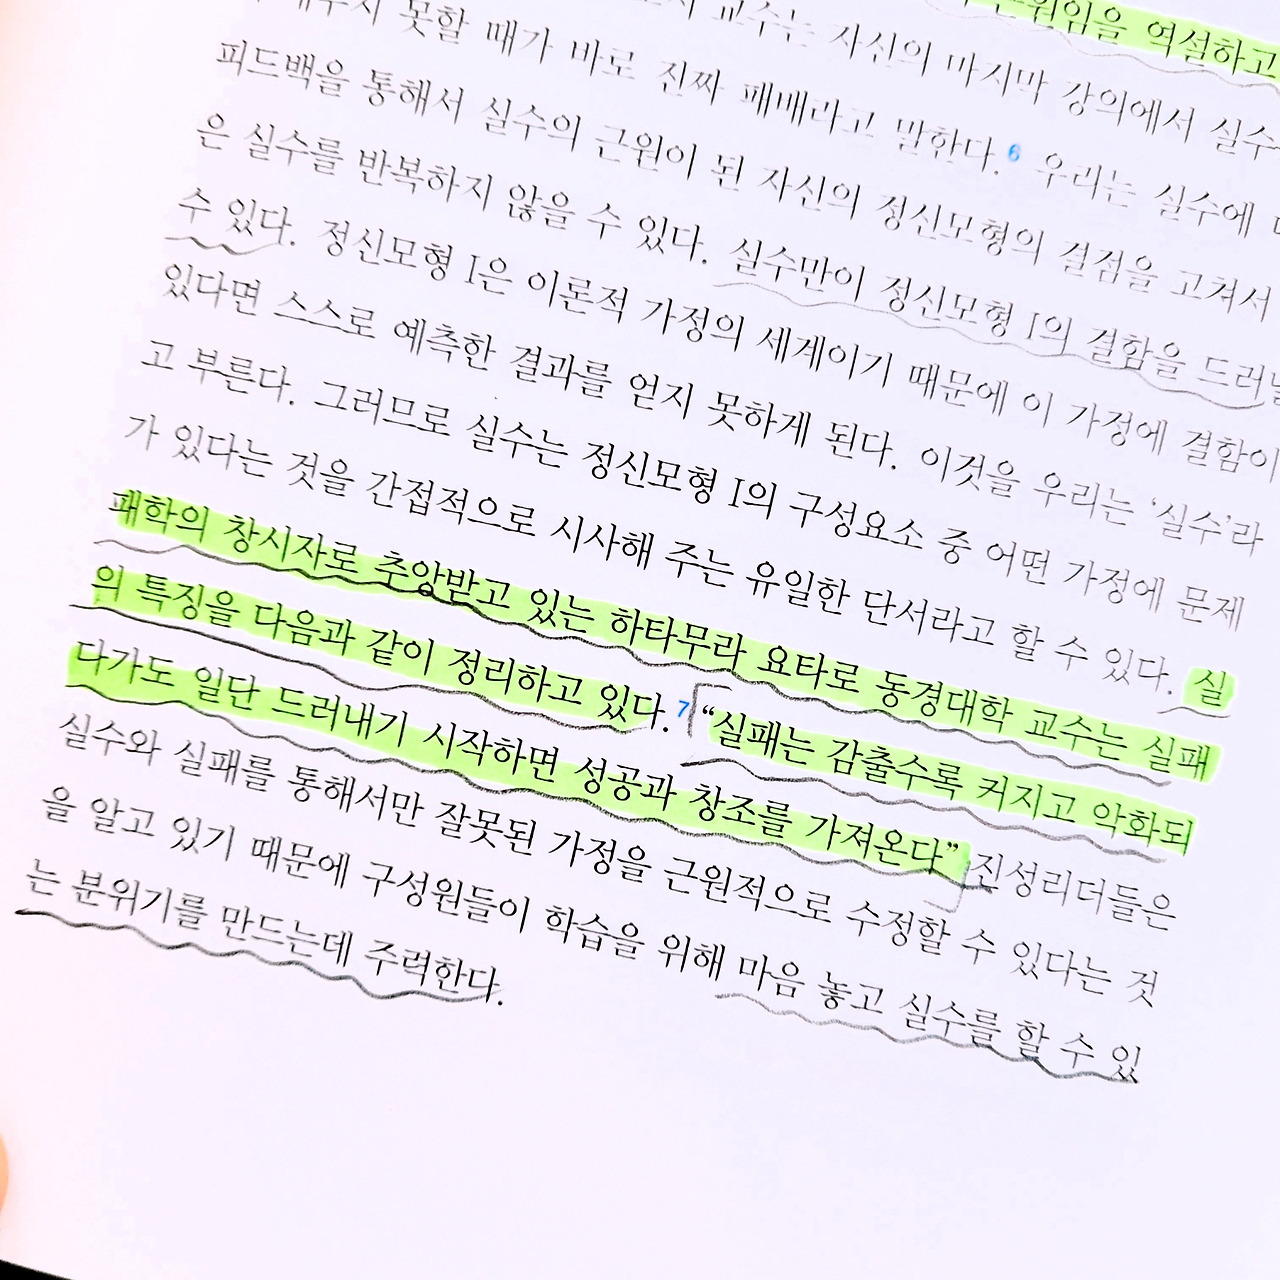 근원임을 역설하고
교수는 자신의 마지막 강의에서
못할 때가 바로 진짜 패배라고 말한다.6 우리는 실수에
피드백을 통해서 실수의 근원이 된 자신의 정신모형의 결점을 고쳐서
은 실수를 반복하지 않을 수 있다. 실수만이 정신모형 I의 결함을 드러낼
수 있다. 정신모형 I은 이론적 가정의 세계이기 때문에 이 가정에 결함이
있다면 스스로 예측한 결과를 얻지 못하게 된다. 이것을 우리는 ‘실수’라
고 부른다. 그러므로 실수는 정신모형 I의 구성요소 중 어떤 가정에 문제
가 있다는 것을 간접적으로 시사해 주는 유일한 단서라고 할 수 있다. 실
패학의 창시자로 추앙받고 있는 하타무라 요타로 동경대학 교수는 실패
의 특징을 다음과 같이 정리하고 있다.7 “실패는 감출수록 커지고 악화되
다가도 일단 드러내기 시작하면 성공과 창조를 가져온다” 진성리더들은
실수와 실패를 통해서만 잘못된 가정을 근원적으로 수정할 수 있다는 것
을 알고 있기 때문에 구성원들이 학습을 위해 마음 놓고 실수를 할 수 있
는 분위기를 만드는데 주력한다.